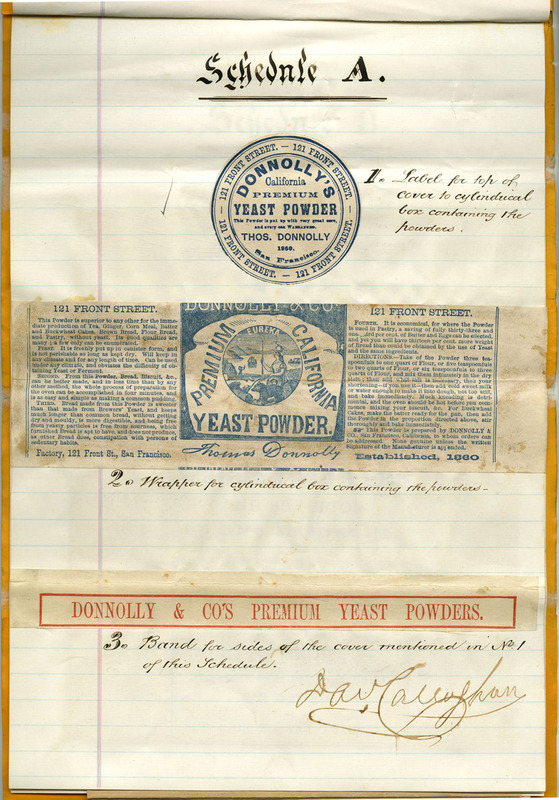 Schedule A.
121 FRONT STREET. — 121 FRONT STREET. — 121 FRONT STREET. — 121 FRONT STREET. —
DONNOLLY'S
California
PREMIUM
YEAST POWDER
This Powder is put up with very great care,
and every one WARRANTED.
THOS. DONNOLLY
1860.
San Francisco.
1. Label for top of
cover to cylindrical
box containing the
powders.
121 FRONT STREET.
This Powder is superior to any other for the imme-
diate production of Tea, Ginger, Corn Meal, Batter
and Buckwheat Cakes, Brown Bread, Flour Bread,
and Pastry, without yeast. Its good qualities are
many; a few only can be enumerated.
FIRST. It is freshly put up in cannister form, and
is not perishable so long as kept dry. Will keep in
any climate and for any length of time. Can be used
under any climate, and obviates the difficulty of ob-
taining Yeast or Ferment.
SECOND. From this Powder, Bread, Biscuit, &c.,
can be better made, and in less time than by any
other method. The whole process of preparation for
the oven can be accomplished in four minutes, and
is as easy and simple as making a common pudding.
THIRD. Bread made from this Powder is sweeter
than that made from Brewers' Yeast, and keeps
much longer than common bread, without getting
dry and mouldy, is more digestible, and being free
from yeasty particles is free from sourness, which
furnished Bread is apt to have, and does not produce,
as other Bread does, constipation with persons of
sedentary habits.
Factory, 121 Front St., San Francisco.
DONNOLLY & CO'S
PREMIUM CALIFORNIA
EUREKA
YEAST POWDER.
Thomas Donnolly
121 FRONT STREET.
FOURTH. It is economical, for where the Powder
is used in Pastry, a saving of fully thirty-three and
one-3rd per cent. of Butter and Eggs can be effected,
and you will have thirteen per cent. more weight
of Bread than could be obtained by the use of Yeast
and the same ingredients.
DIRECTIONS.—Take of the Powder three tea-
spoonfuls to one quart of Flour, or five teaspoonfuls
to two quarts of Flour, or six teaspoonfuls to three
quarts of Flour, and mix them intimately in the dry
state; then add what salt is necessary, then your
shortening—if you use it—then add cold sweet milk
or water enough to make it into dough, not too stiff,
and bake immediately. Much kneading is detri-
mental, and the oven should be hot before you com-
mence mixing your biscuit, &c. For Buckwheat
Cakes, make the batter ready for the pan, then add
the Powder in the proportion directed above, stir
thoroughly and bake immediately.
This Powder is prepared by DONNOLLY &
CO., San Francisco, California, to whom orders can
be addressed. None genuine unless the written
signature of the Manufacturer is appended.
Established, 1860
2. Wrapper for cylindrical box containing the powders —
DONNOLLY & CO'S PREMIUM YEAST POWDERS.
3. Band for sides of the cover mentioned in No. 1
of this Schedule.